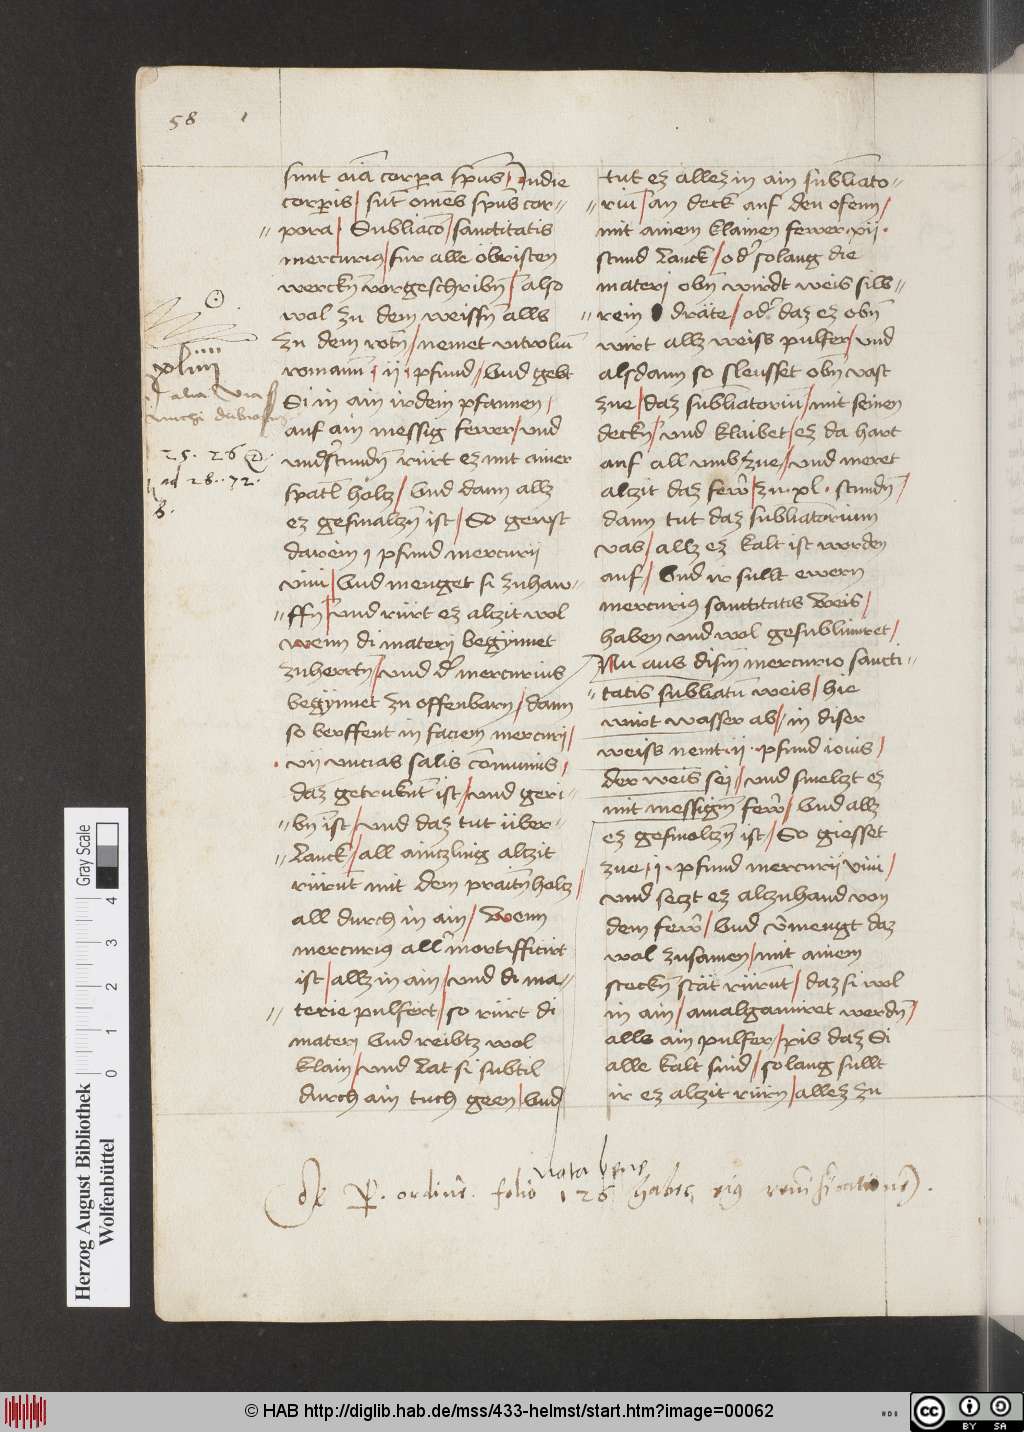 58 1
sunt oīa corpora spūs / Indie
corpis / sūt om̄es spūs cor=
= pora / Subliacō / sanctitatis
mercurius / für alle obristen
werckn̄ vorgeschribn̄ / also
wol zu dem weissn̄ alls
zu dem rotn̄ / nemet vitrolum̄
romanum̄ / ij / pfund / Vnd gebt
Si in ain irdem pfannen /
auf ain messig fewer / vnd
vndstundn̄ rürt ez mit ainer
spatl holtz / Vnd dann allz
ez gesmaltzn̄ ist / So genst
darein j pfund mercurij
viui / Vnd menget si zuhau=
= ffn̄ / vnd rürt ez altzit wol
wenn di materij begynnet
zuherttn̄ / vnd d' mercurius
begynnet zu offenbarn / dann
so berffent in faciem mercurij /
· vij vncias salis cōmunis /
daz getrukn̄t ist / vnd geri=
= bn̄ ist / vnd daz tut über=
= Lanck / all aintzling altzit
rürūt mit dem praitn̄ holtz /
all durch in ain / Wenn
mercurius all mortifficirt
ist / allz in ain / vnd di ma=
= terie pulfert / so rürt di
materj Vnd reibtz wol
klain / vnd Lat si subtil
durch ain tuch geen / Vnd
tut ez allez in ain subliato=
= riū / an deck auf den ofenn /
mit ainem klainen fewer xij ·
stund Lanck / od' solang die
materj obn̄ wirdt weis silb=
= rein dräte / od' daz ez obn̄
wirt allz weiss pulfer / vnd
alsdann so sleusset obn̄ vast
zue / daz subliatoriū / mit seinen
deckn̄ / vnd klaibet / ez da hart
auf all vmb zue / vnd meret
altzit daz fewr̄ / zu · xl · stundn̄ /
dann tut daz subliatorium
vas / allz ez kalt ist worden
auf / Vnd ir sullt ewern
mercurius sanctitatis Weis /
haben vnd wol gesublimret /
Nu aus dism̄ mercurio sancti=
= tatis subliatū weis / hie
wirt wasser ab / in diser
weiss nemt · ij · pfund iouis /
der weis sei / vnd smeltzt ez
mit messign̄ fewr̄ / Vnd allz
ez gesmoltzn̄ ist / So giesset
zue / j · pfund mercurij viui /
vnd setzt ez altzuhand von
dem fewr̄ / Vnd v̄mengt daz
wol zusamen / mit ainem
steckn̄ stät rürūt / daz si wol
in ain / amalgamiret werdn̄ /
alls ain pulfer / xib daz Si
alle kalt sind / solang sullt
ir ez altzit rürn / allez zu
xliiij
25. 26
ad 28. 72.
nota bene
de ordine folio 126 habes eius
Herzog August Bibliothek
Wolfenbüttel
Gray Scale
0 1 2 3 4
© HAB http://diglib.hab.de/mss/433-helmst/start.htm?image=00062
HAB
cc BY SA